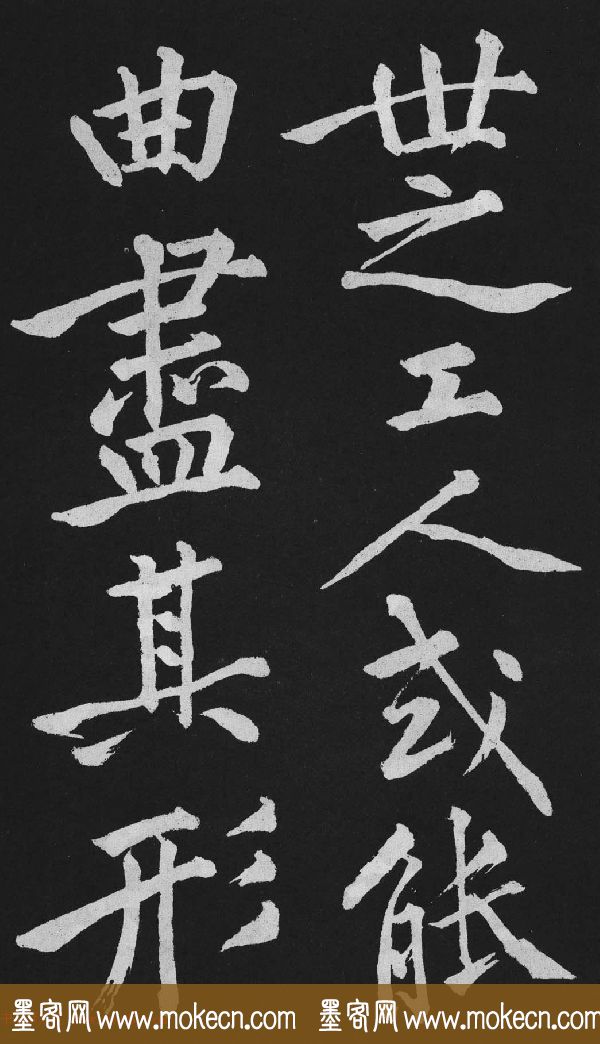 世之工人或能
曲盡其形
墨客网 www.mokecn.com 墨客网 www.mokecn.com